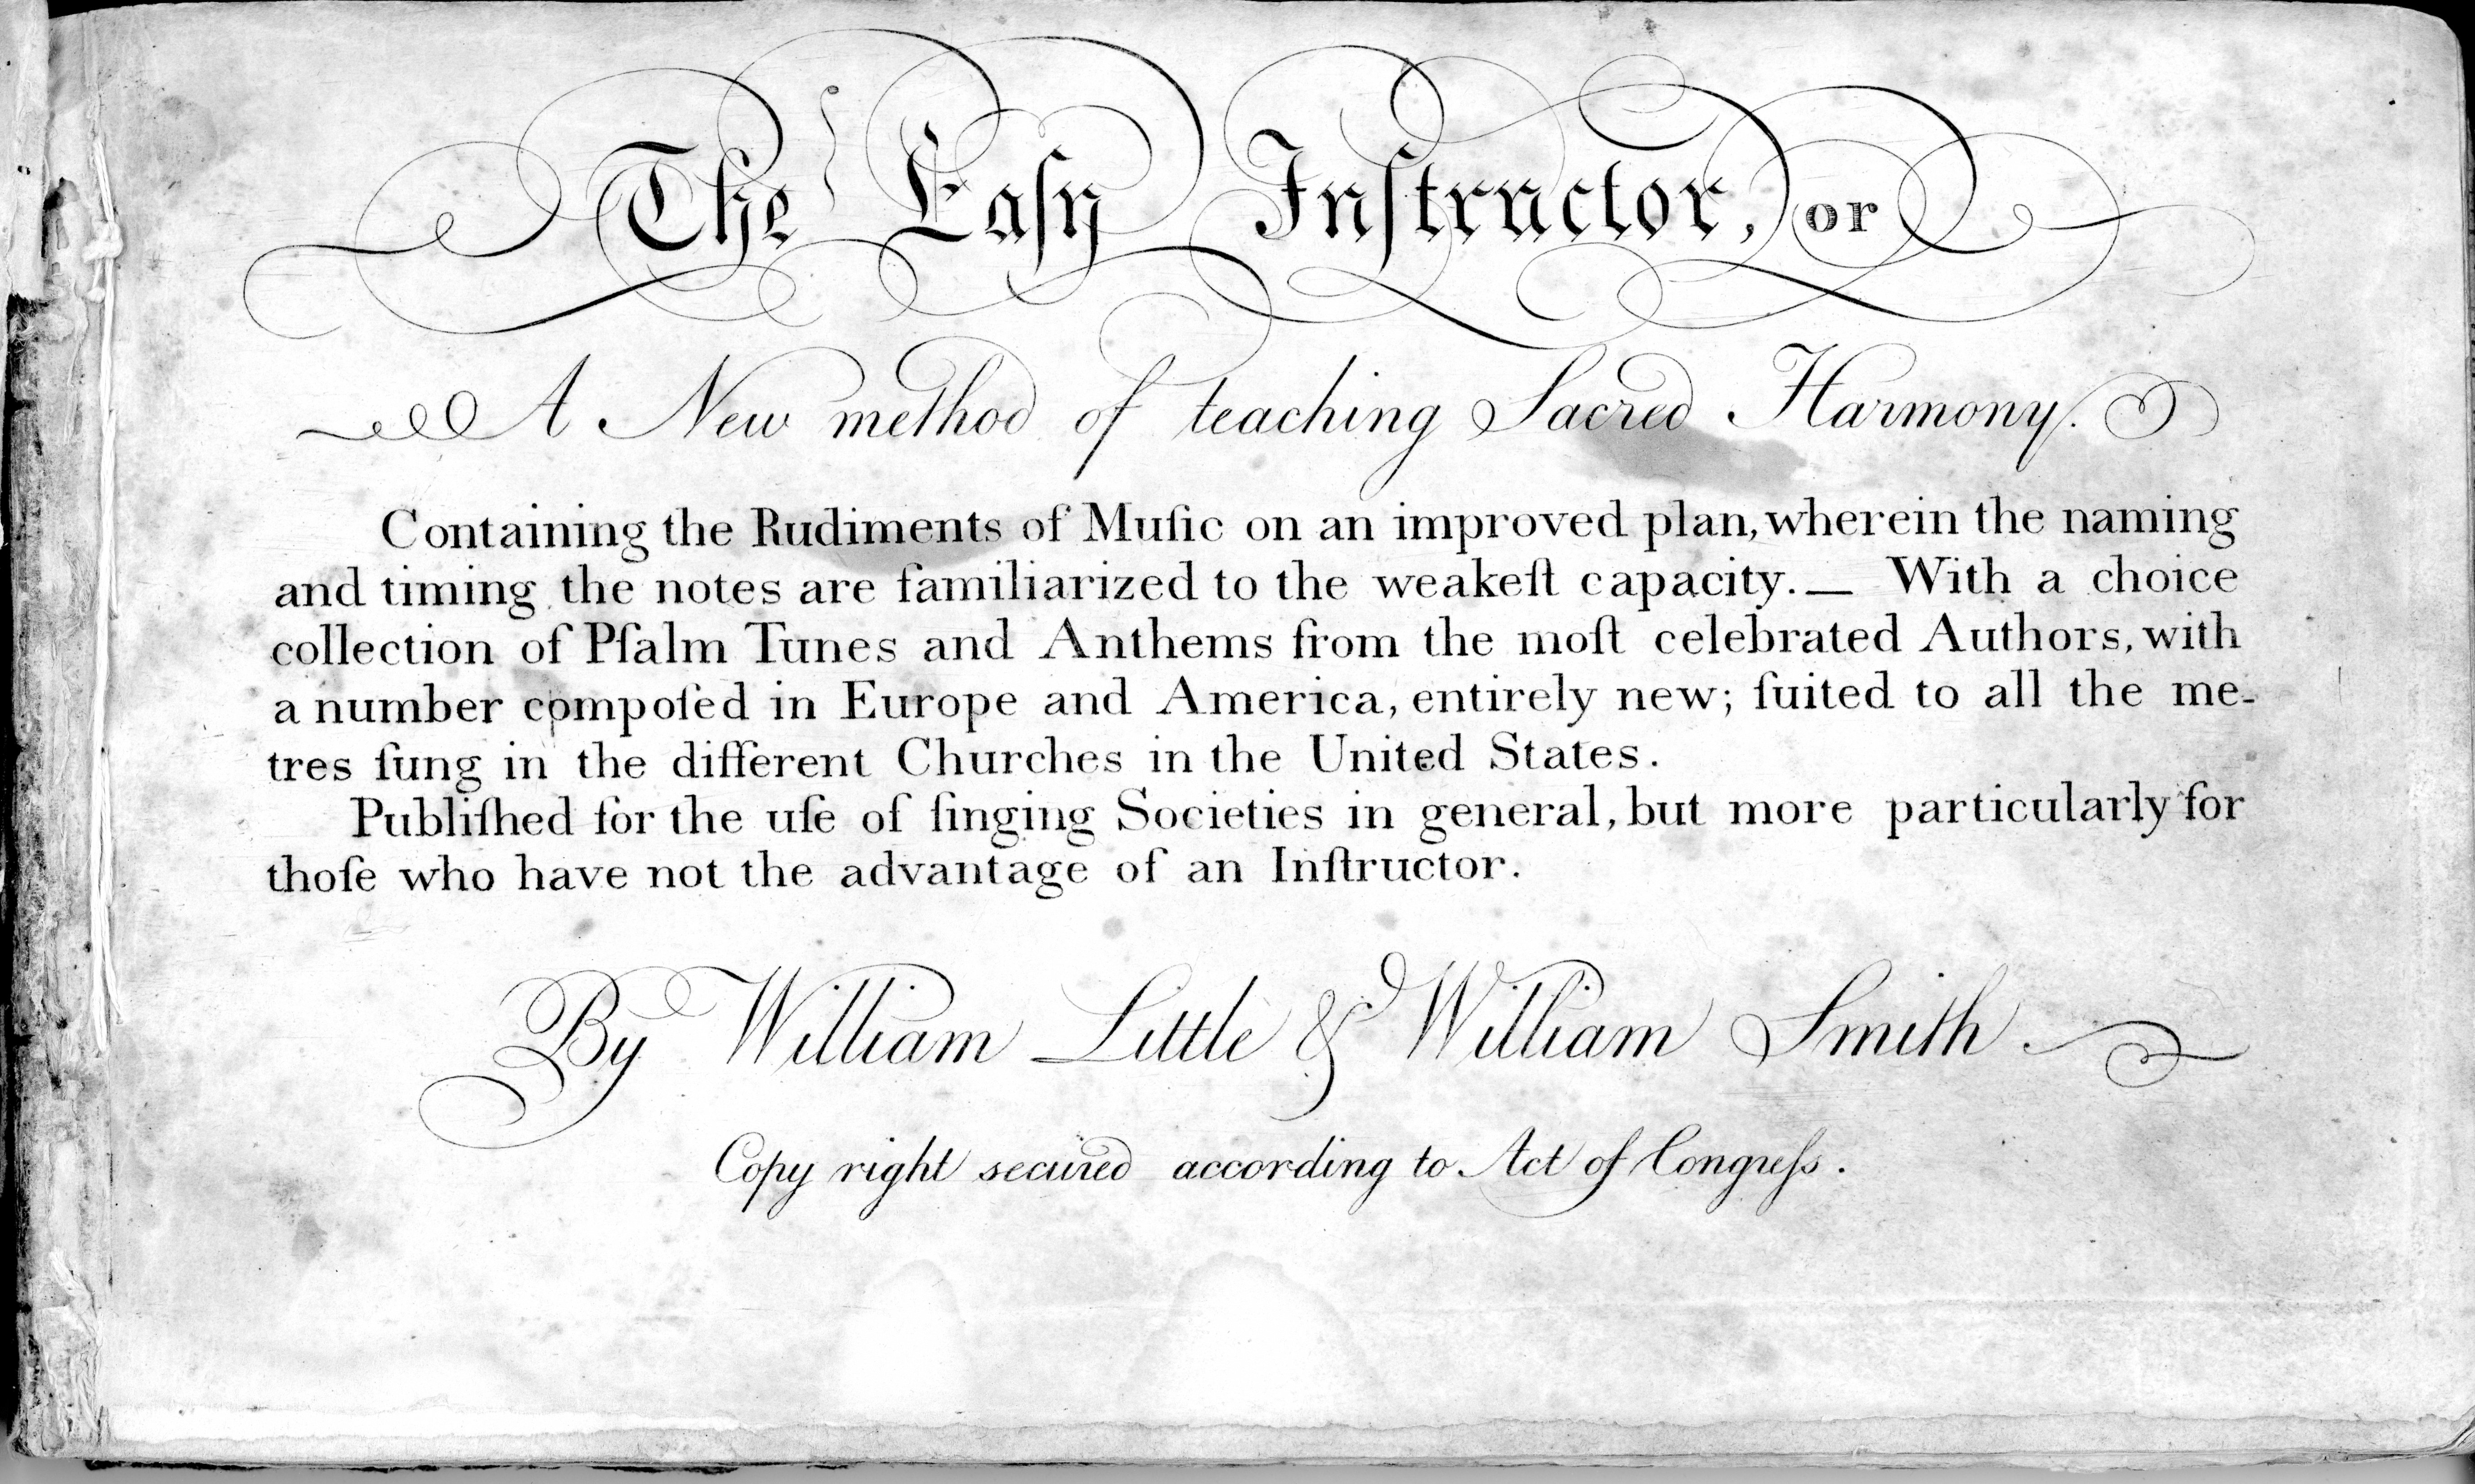 The Eaſy Inſtructor, or
A New method of teaching Sacred Harmony.
Containing the Rudiments of Muſic on an improved plan, wherein the naming
and timing the notes are familiarized to the weakeſt capacity. — With a choice
collection of Pſalm Tunes and Anthems from the moſt celebrated Authors, with
a number compoſed in Europe and America, entirely new; ſuited to all the me-
tres ſung in the different Churches in the United States.
Publiſhed for the uſe of ſinging Societies in general, but more particularly for
thoſe who have not the advantage of an Inſtructor.
By William Little & William Smith
Copy right secured according to Act of Congreſs.